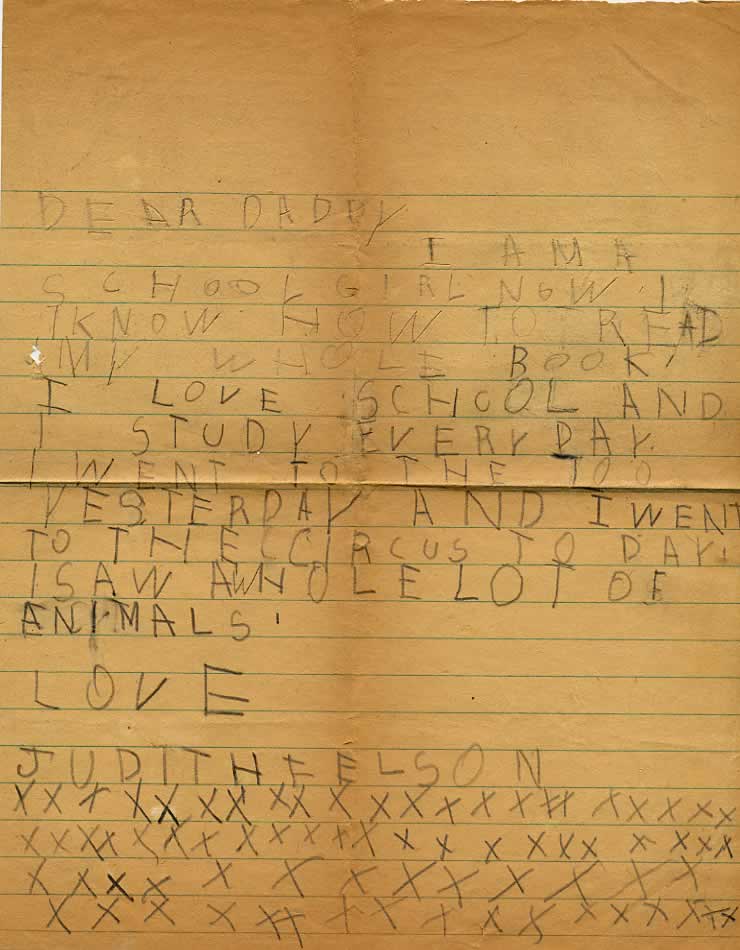 DEAR DADDY
I AM A
SCHOOL GIRL NOW.
I KNOW HOW TO READ
MY WHOLE BOOK,
I LOVE SCHOOL AND
I STUDY EVERY DAY.
I WENT TO THE TOO
YESTERDAY AND I WENT
TO THE CIRCUS TO DAY.
I SAW A WHOLE LOT OF
ANIMALS.
LOVE
JUDITH FELSON
X X X X X X X X X X X X X X X X X X X X X X X
X X X X X X X X X X X X X X X X X X X X X X X
X X X X X X X X X X X X X X
X X X X X X X X X X X X X X X X X